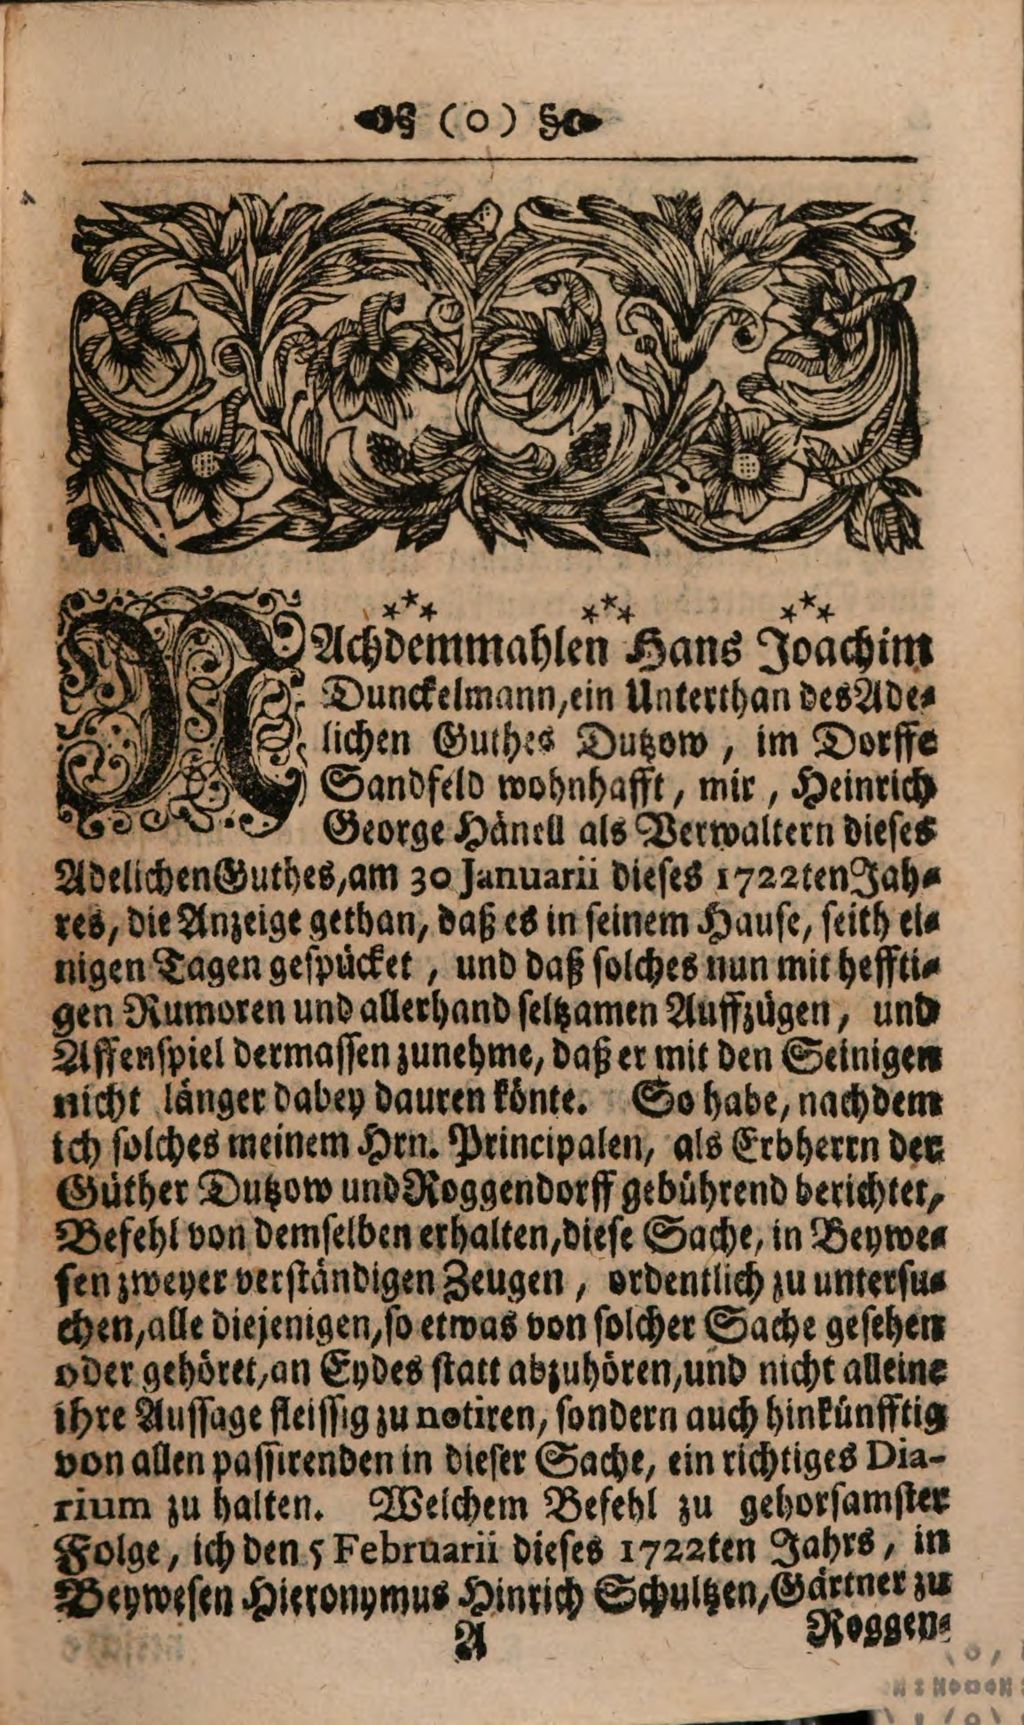 (o)
NAchdemmahlen Hans Joachim
Dunckelmann, ein Unterthan des Ade-
lichen Guthes Dutzow, im Dorffe
Sandfeld wohnhafft, mir, Heinrich
George Hänell als Verwaltern dieses
Adelichen Guthes, am 30 Januarii dieses 1722ten Jah-
res, die Anzeige gethan, daß es in seinem Hause, seith ei-
nigen Tagen gespücket, und daß solches nun mit heffti-
gen Rumoren und allerhand seltzamen Auffzügen, und
Affenspiel dermassen zunehme, daß er mit den Seinigen
nicht länger dabey dauren könte. So habe, nachdem
ich solches meinem Hrn. Principalen, als Erbherrn der
Güther Dutzow und Roggendorff gebührend berichtet,
Befehl von demselben erhalten, diese Sache, in Beywe-
sen zweyer verständigen Zeugen, ordentlich zu untersu-
chen, alle diejenigen, so etwas von solcher Sache gesehen
oder gehöret, an Eydes statt abzuhören, und nicht alleine
ihre Aussage fleissig zu notiren, sondern auch hinkünfftig
von allen passirenden in dieser Sache, ein richtiges Dia-
rium zu halten. Welchem Befehl zu gehorsamster
Folge, ich den 5 Februarii dieses 1722ten Jahrs, in
Beywesen Hieronymus Hinrich Schultzen, Gärtner zu
A Roggen-